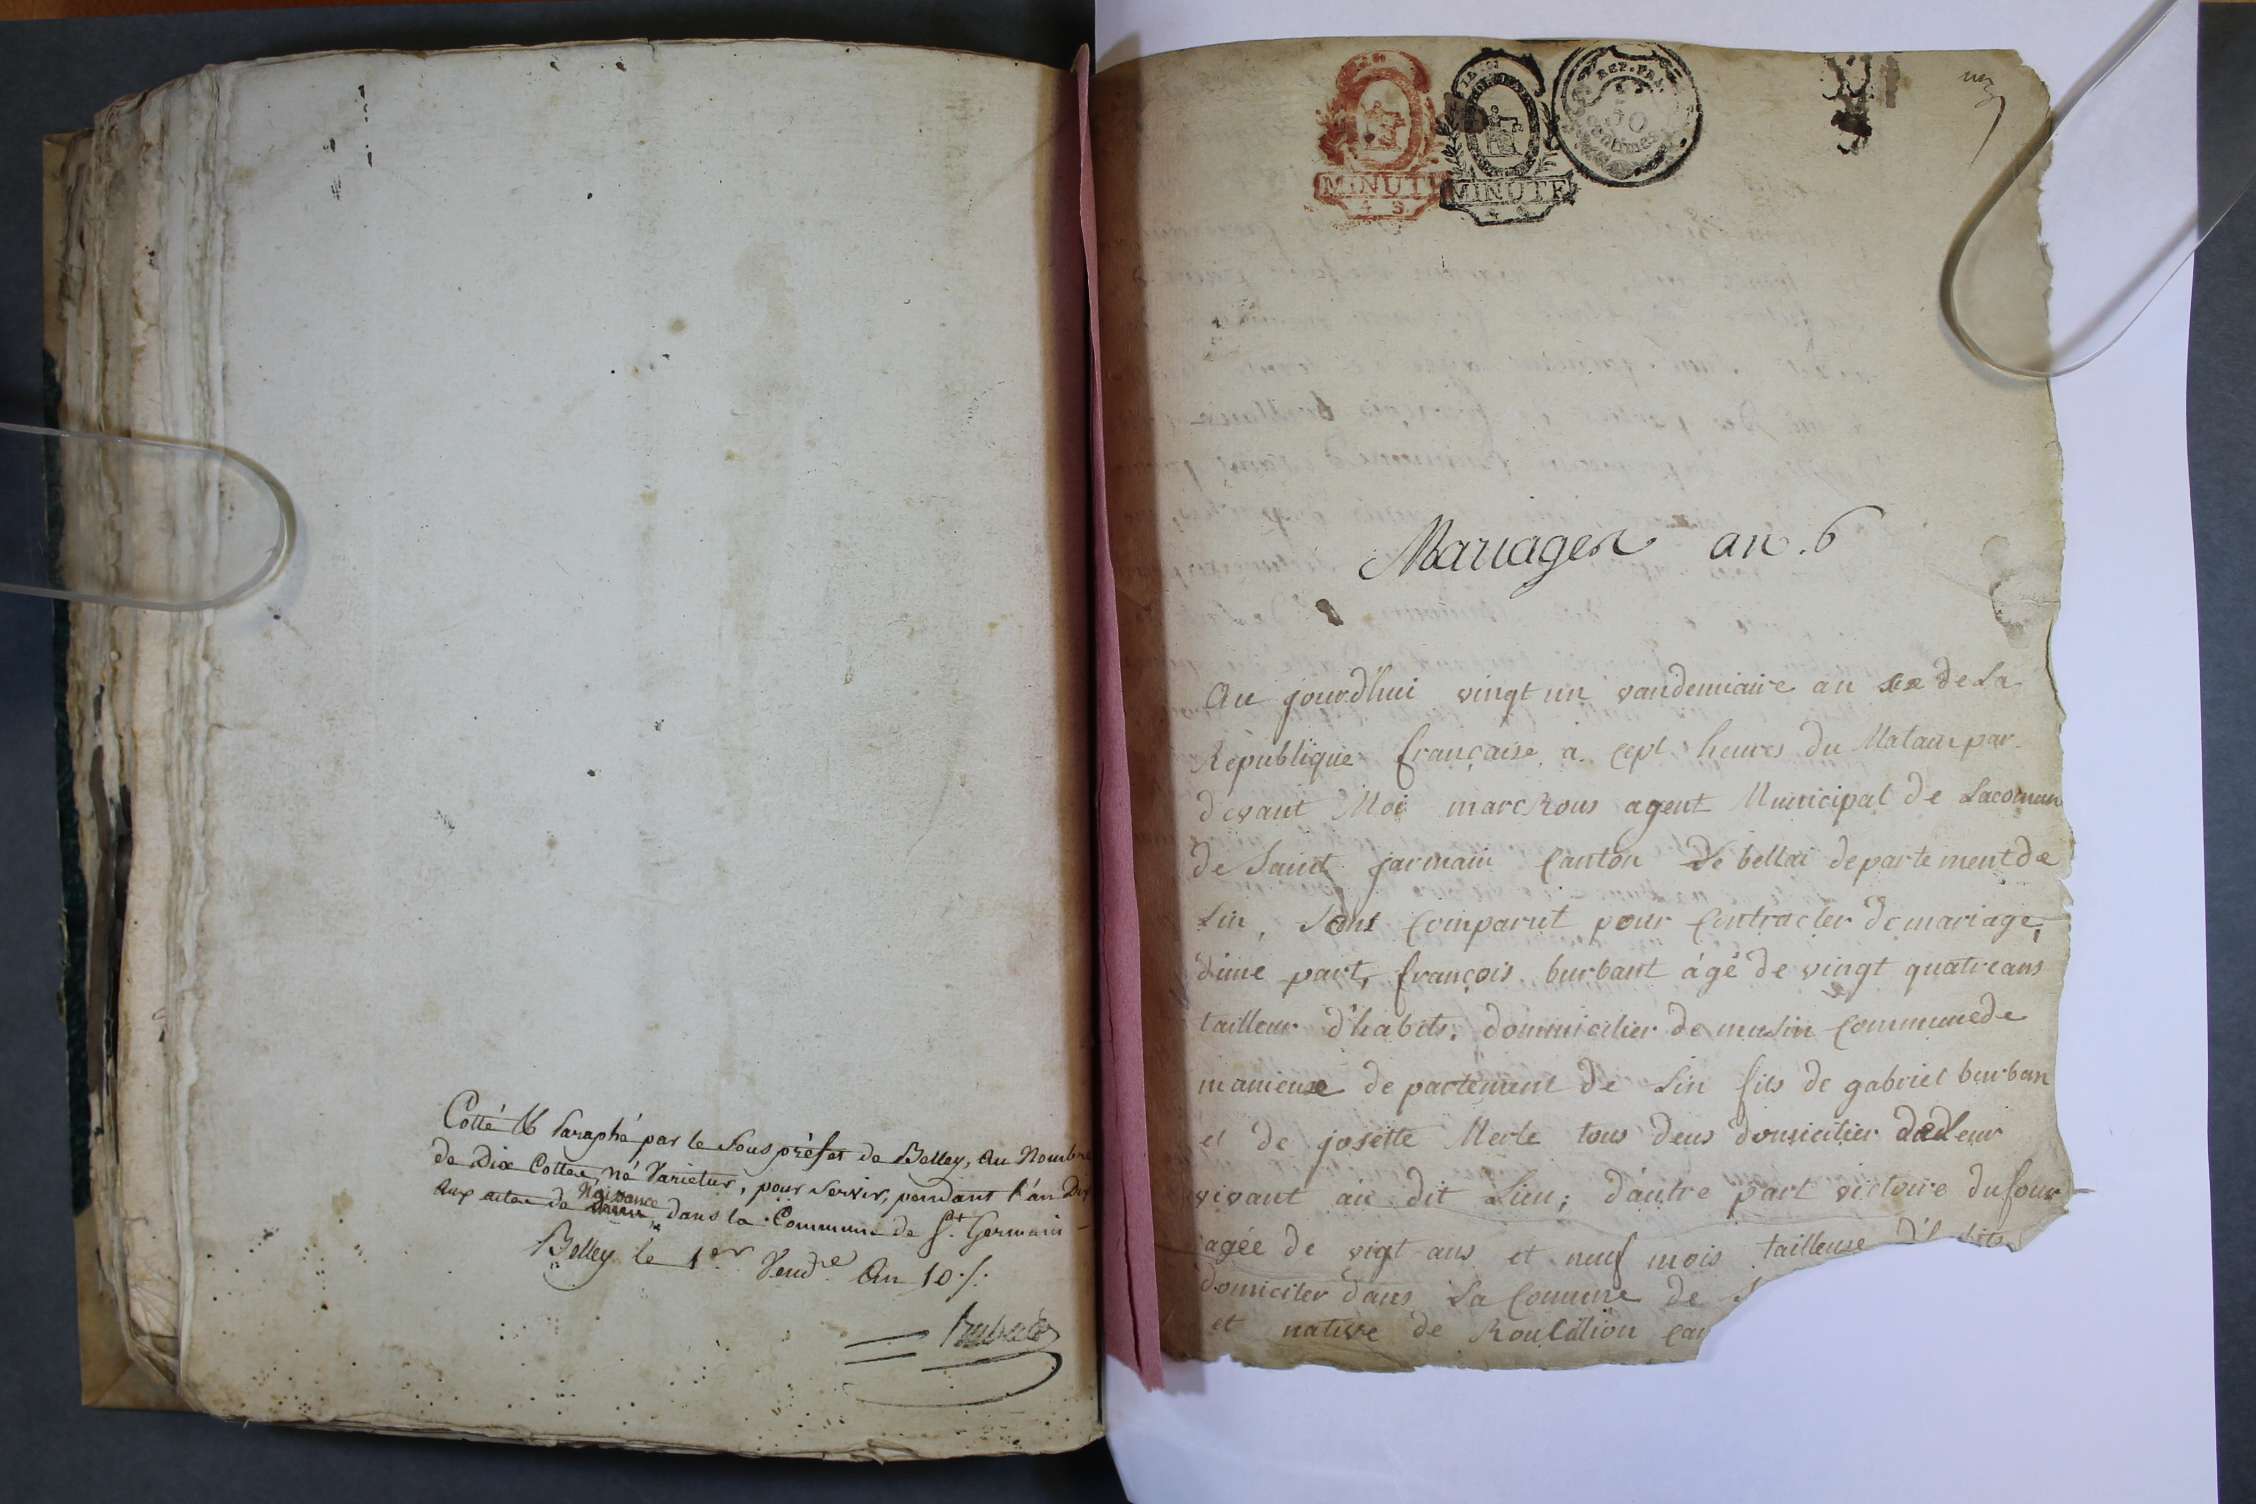 Cotté & Paraphé par le Sous préfet de Belley, Au Nombre
de Dix Cottes, né Varietur, pour servir, pendant l'an Dix
Aux actes de Naissance dans la Commune de St. Germain
Belley le 1er Vendre An 10./.
MINUTE
4 S
MINUTE
REP. FRA
50
centimes
Mariages an. 6
Au jourd'hui vingt un vandemiaire an six de La
Republique française a cept heures du Matain par
devant Moi marc Rous agent Municipal de Lacomun
de Saint jarmain Canton de bellai departement de
Lin, Sont Comparut pour Contracter de mariage,
d'une part, françois burbant âgé de vingt quatre ans
tailleur d'habits. dommicilier de musin Commune de
manieux departement de Lin fils de gabriel burban
et de josette Merle tous deus domicilier de Leur
vivant au dit Lieu; d'autre part victoire dufour
agée de vigt ans et neuf mois tailleuse d'habits
domicilier dans La Comune de S
et native de Roulilion can